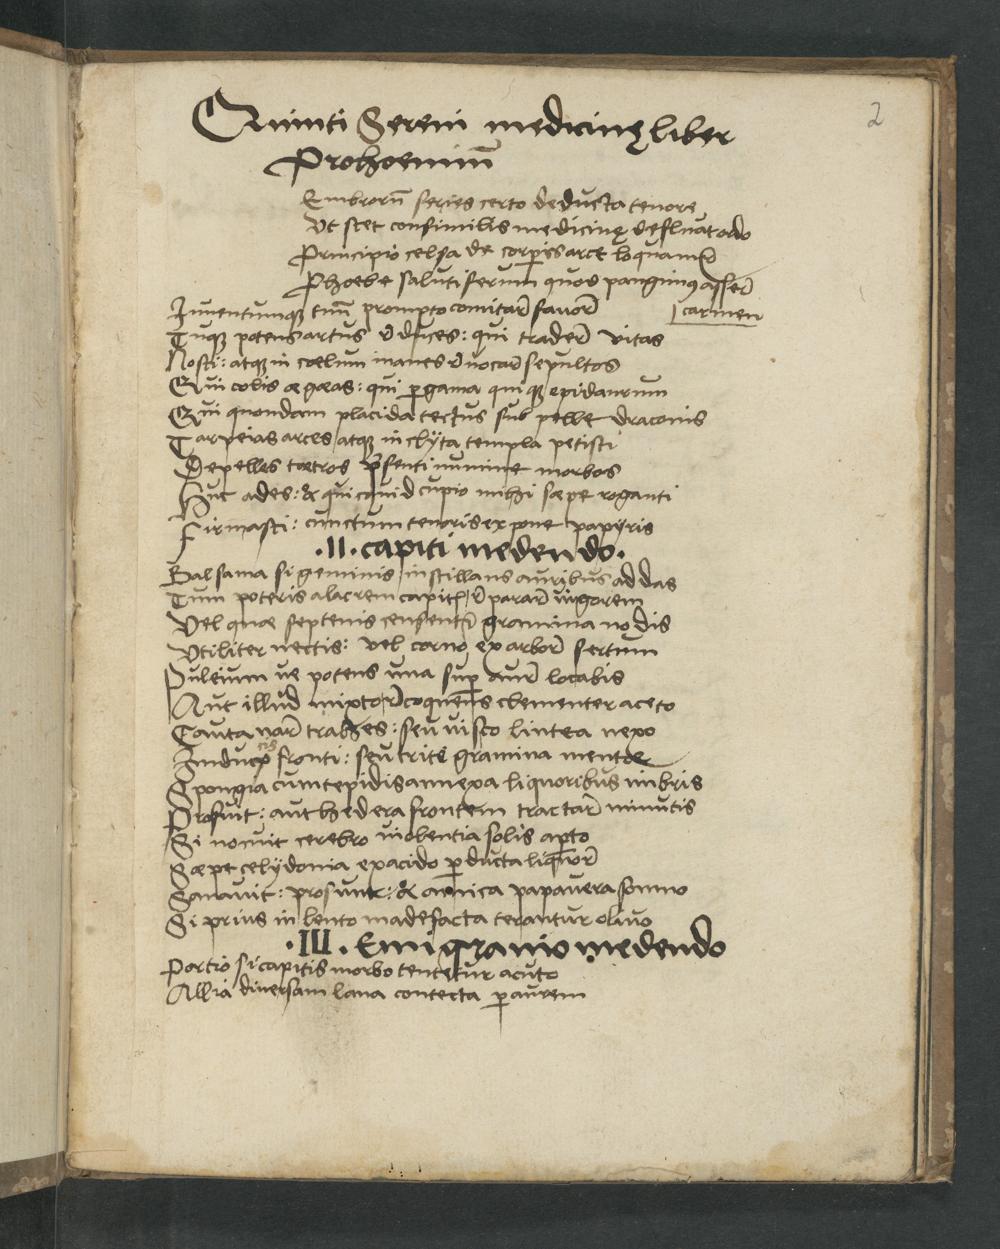 2
Quinti Sereni medicinę liber
Prohoemiū
Embrorū series certo deducta tenore
Vt stet consimilis medicinę defluat ordo
Principio celsa de corpīs arce loquamr̄
Phoebe salutiferum quod pangimꝰ asser̄
Inventumqꝫ tuū prompto comitar̄ fauor̄ [carmen
Tuqꝫ potens artus reduces: qui trader̄ vitas
Nosti: atqꝫ in coelum manes reuocar̄ sepultos
Qui colis ægæas: qui ꝑgama quiqꝫ epidaurum
Qui quondam placida tectus sub pelle draconis
Tarpeias arces atqꝫ inclyta templa petisti
Depelles tætros p̄senti numine morbos
Huc ades: & quicquid cupio mihi sæpe roganti
Firmasti: cunctum teneris expone papyris
.II. capiti medendo.
Balsama si geminis instillans auribus addas
Tum poteris alacrem capitis reparar̄ uigorem
Vel quæ septenis censentr̄ gramina nodis
Vtiliter nectis: vel corno ex arbor̄ sertum
Puleium ue potens una suꝑ aur̄ locabis
Aut illud mixto recoquens clementer aceto
Cauta nar̄ trahes: seu uisco lintea nexo
Induces fronti: seu tritę gramina mentæ
Spongia cum tepidis annexa liquoribus imbris
Profuit: aut hedera frontem tractar̄ minutis
Si nocuit cerebro uiolentia solis aꝑto
Sæpe celydonia ex acido ꝑducta liquor̄
Sanauit: prosunt: & amica papauera somno
Si prius in lento madefacta terantur oliuo
.III. Emigranio medendo
Portio si capitis morbo tentetur acuto
Allia diuersam lana contecta ꝑ aurem